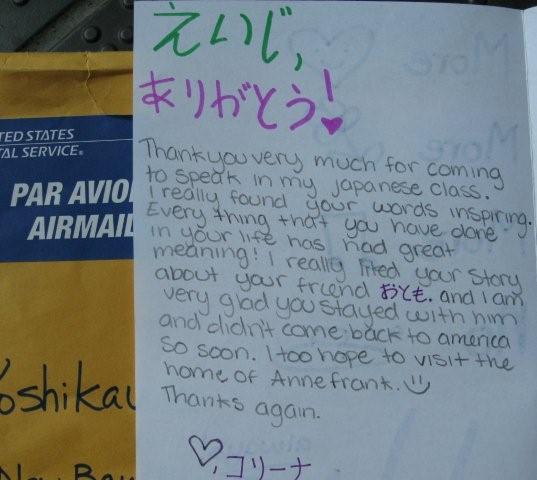 UNITED STATES
POSTAL SERVICE®
PAR AVIO
AIRMAIL
oshikau
えいじ,
ありがとう!
Thank you very much for coming
to speak in my Japanese class.
I really found your words inspiring.
Every thing that you have done
in your life has had great
meaning! I really liked your story
about your friend おとも. and I am
very glad you stayed with him
and didn't come back to america
so soon. I too hope to visit the
home of Anne frank.
Thanks again.
コリーナ
More
More